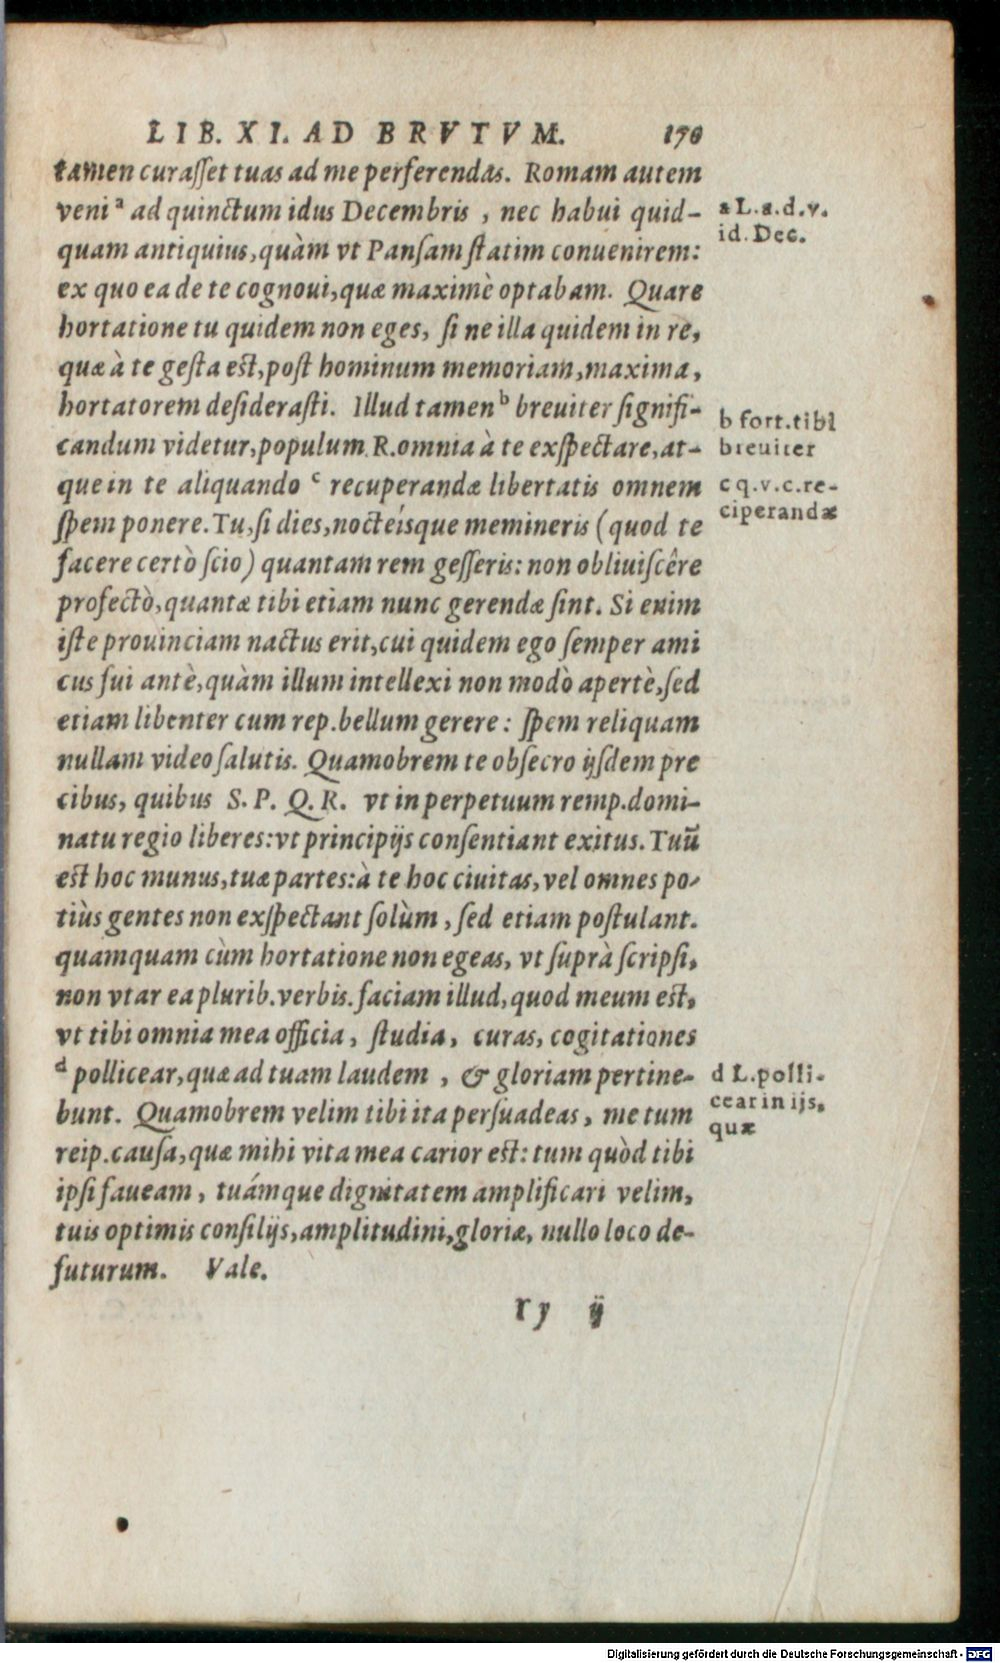 LIB. XI. AD BRVTVM. 170
tamen curaſſet tuas ad me perferendas. Romam autem
veni ª ad quinctum idus Decembris, nec habui quid-
quam antiquius, quàm vt Panſam ſtatim conuenirem:
ex quo ea de te cognoui, quæ maximè optabam. Quare
hortatione tu quidem non eges, ſi ne illa quidem in re,
quæ à te geſta eſt, poſt hominum memoriam, maxima,
hortatorem deſideraſti. Illud tamen ᵇ breuiter ſignifi-
candum videtur, populum R. omnia à te exſpectare, at-
que in te aliquando ᶜ recuperandæ libertatis omnem
ſpem ponere. Tu, ſi dies, noctéisque memineris (quod te
facere certò ſcio) quantam rem geſſeris: non obliuiſcêre
profectò, quantæ tibi etiam nunc gerendæ ſint. Si enim
iſte prouinciam nactus erit, cui quidem ego ſemper ami
cus fui antè, quàm illum intellexi non modò apertè, ſed
etiam libenter cum rep. bellum gerere: ſpem reliquam
nullam video ſalutis. Quamobrem te obſecro ijſdem pre
cibus, quibus S. P. Q. R. vt in perpetuum remp. domi-
natu regio liberes: vt principijs conſentiant exitus. Tuū
eſt hoc munus, tuæ partes: à te hoc ciuitas, vel omnes po-
tiùs gentes non exſpectant ſolùm, ſed etiam poſtulant.
quamquam cùm hortatione non egeas, vt ſuprà ſcripſi,
non vtar ea plurib. verbis. faciam illud, quod meum eſt,
vt tibi omnia mea officia, ſtudia, curas, cogitationes
ᵈ pollicear, quæ ad tuam laudem, & gloriam pertine-
bunt. Quamobrem velim tibi ita perſuadeas, me tum
reip. cauſa, quæ mihi vita mea carior eſt: tum quòd tibi
ipſi faueam, tuámque dignitatem amplificari velim,
tuis optimis conſilijs, amplitudini, gloriæ, nullo loco de-
futurum. Vale.
ry ij
a L. a. d. v.
id. Dec.
b fort. tibi
breuiter
c q. v. c. re-
ciperandæ
d L. polli-
cear in ijs,
quæ
Digitalisierung gefördert durch die Deutsche Forschungsgemeinschaft - DFG